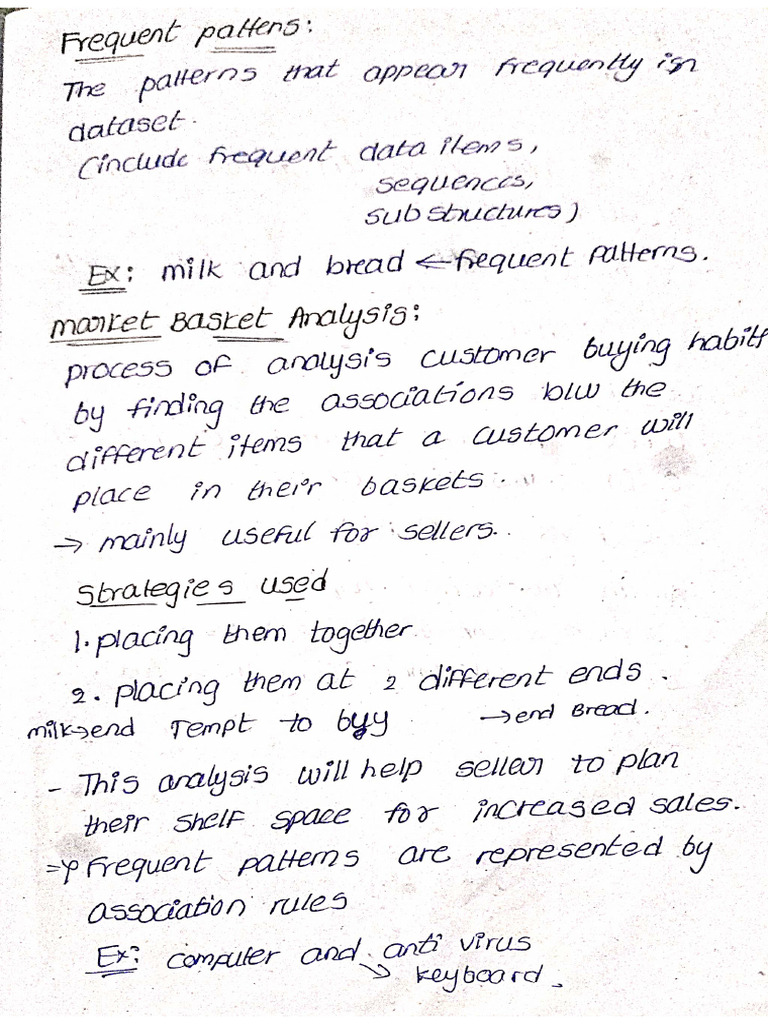 Frequent pattens:
The patterns that appear frequently in
dataset.
(include frequent data items,
sequences,
substructures)
Ex: milk and bread ← frequent patterns.
Market Basket Analysis:
process of analysis customer buying habits
by finding the associations b/w the
different items that a customer will
place in their baskets.
→ mainly useful for sellers.
Strategies used
1. placing them together
2. placing them at 2 different ends.
milk→end Tempt to buy →end Bread.
- This analysis will help seller to plan
their shelf space for increased sales.
⇒ Frequent patterns are represented by
association rules
Ex: computer and anti virus
→ keyboard.